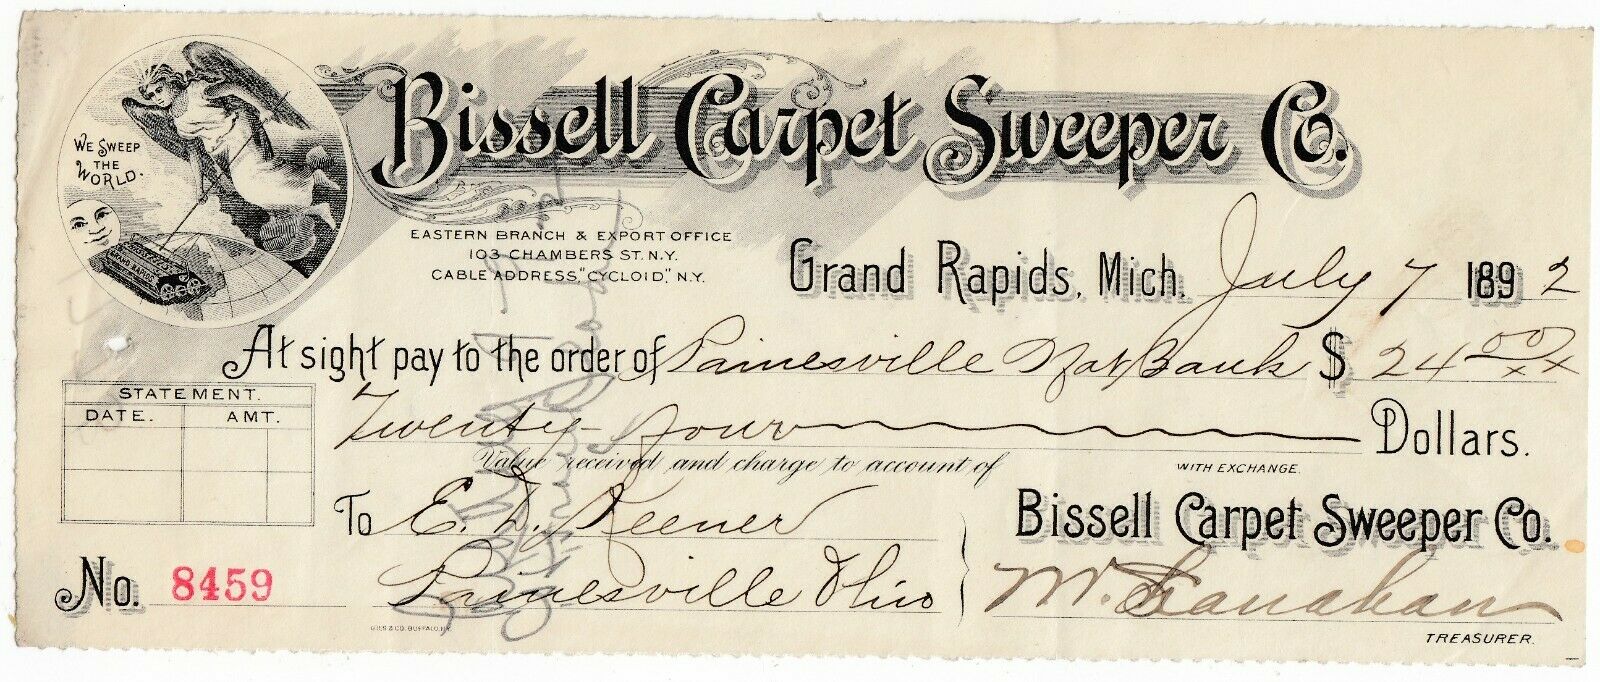 Bissell Carpet Sweeper Co.
WE SWEEP
THE
WORLD.
GRAND RAPIDS
EASTERN BRANCH & EXPORT OFFICE
103 CHAMBERS ST. N.Y.
CABLE ADDRESS, "CYCLOID," N.Y.
Grand Rapids, Mich. July 7 1892
At sight pay to the order of Painesville Nat Bank $ 24 00/xx
Twenty four Dollars.
Value received and charge to account of WITH EXCHANGE.
STATEMENT.
DATE. AMT.
To E. D. Keener
Painesville Ohio
Bissell Carpet Sweeper Co.
M. Shanahan
TREASURER.
No. 8459
& CO. BUFFALO, N.Y.